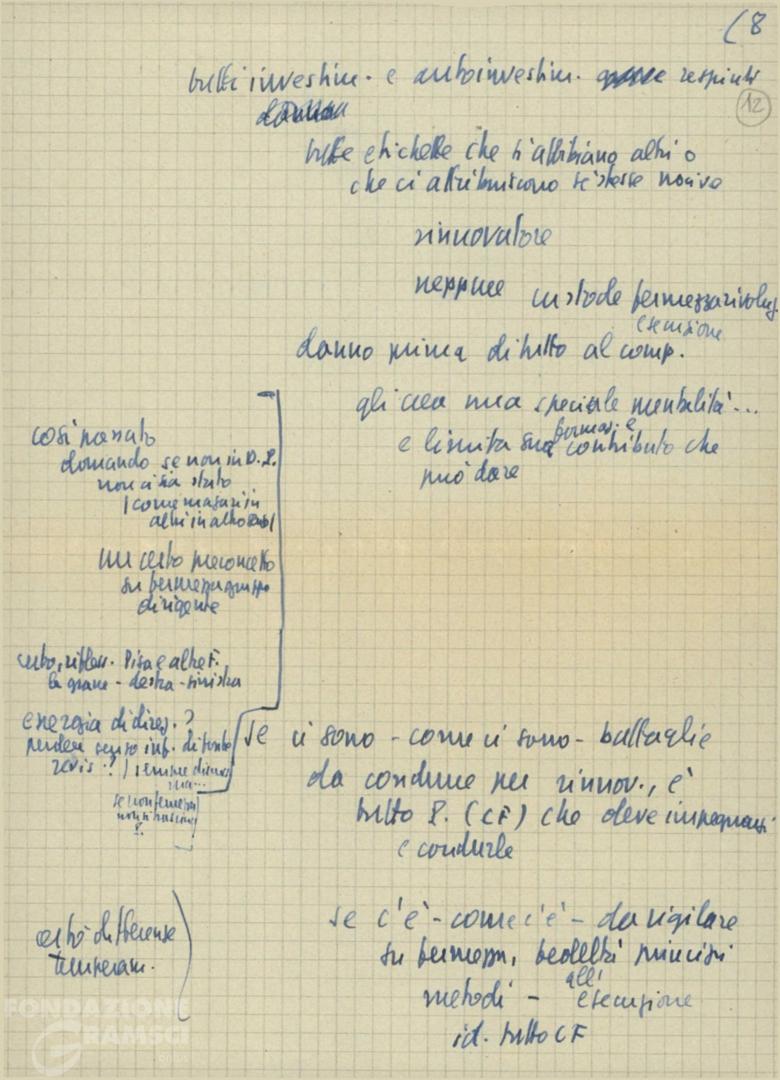 (8
tutti investim. e autoinvestim. respinti
12
tutte etichette che s'affibbiano altri o
che ci attribuiscono se stesse nocive
rinnovatore
neppure custode fermezza rivoluz.
esecuzione
danno prima di tutto al comp.
gli crea una speciale mentalità...
formaz. e
e limita sua contributo che
può dare
così passato
domando se non in D. P.
non ci sia stato
(come magari in
altri in altro
un certo preconcetto
su fermezza gruppo
dirigente
rifless. Pisa e altre F.
destra - sinistra
energia di direz. ?
perdere senso inf. di fondo
revis. ?
se non fermezza
P.
se ci sono - come ci sono - battaglie
da condurre per rinnov., è
tutto P. (CF) che deve impegnarsi
e condurle
certo differenze
temperam.
se c'è - come c'è - da vigilare
su fermezza, fedeltà principi
all'
metodi - esecuzione
id. tutto CF
FONDAZIONE
GRAMSCI